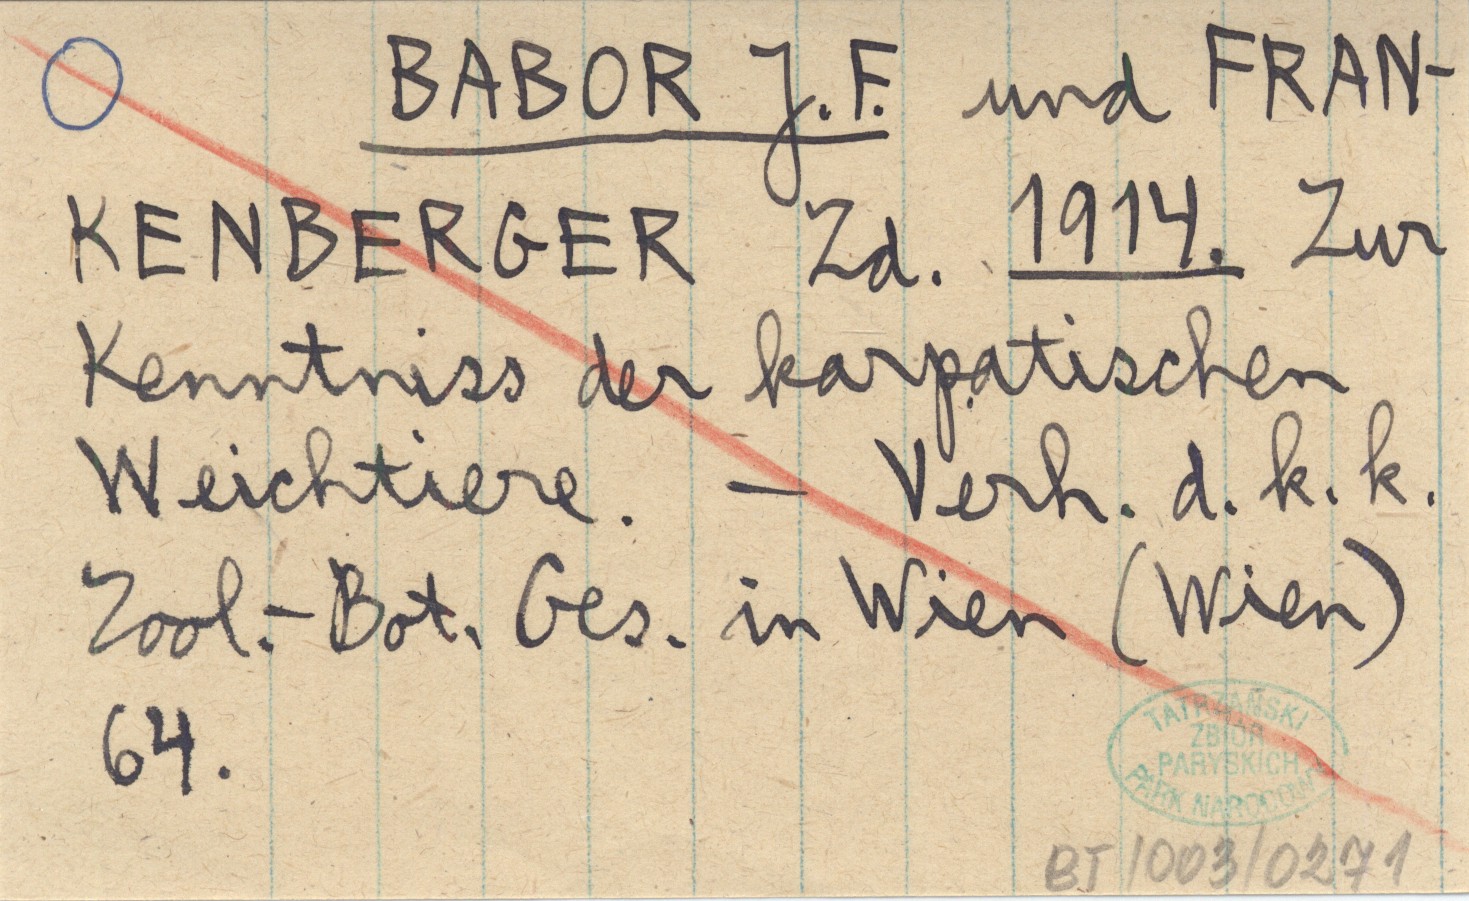 BABOR J.F. und FRAN-
KENBERGER Zd. 1914. Zur
Kenntniss der karpatischen
Weichtiere. – Verh. d. k. k.
Zool.-Bot. Ges. in Wien (Wien)
64.
TATRZAŃSKI
ZBIÓR
PARYSKICH
PARK NARODOWY
BT/003/0271